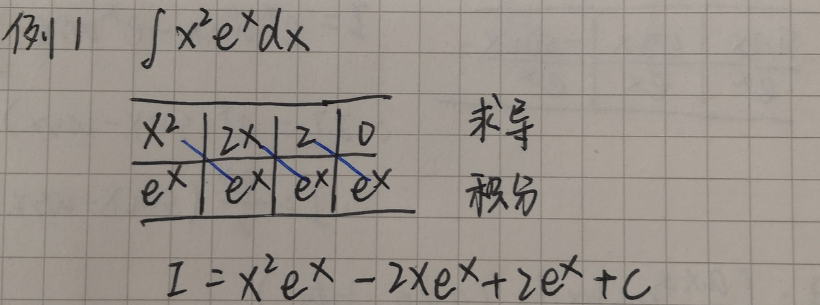 例1 ∫x²eˣdx
x² 2x 2 0 求导
eˣ eˣ eˣ eˣ 积分
I = x²eˣ - 2xeˣ + 2eˣ + C